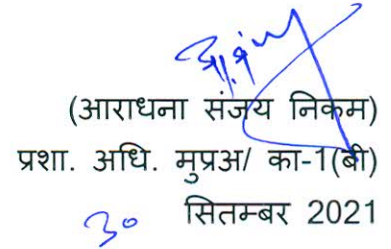 (आराधना संजय निकम)
प्रशा. अधि. मुप्रअ/ का-1(बी)
३० सितम्बर 2021